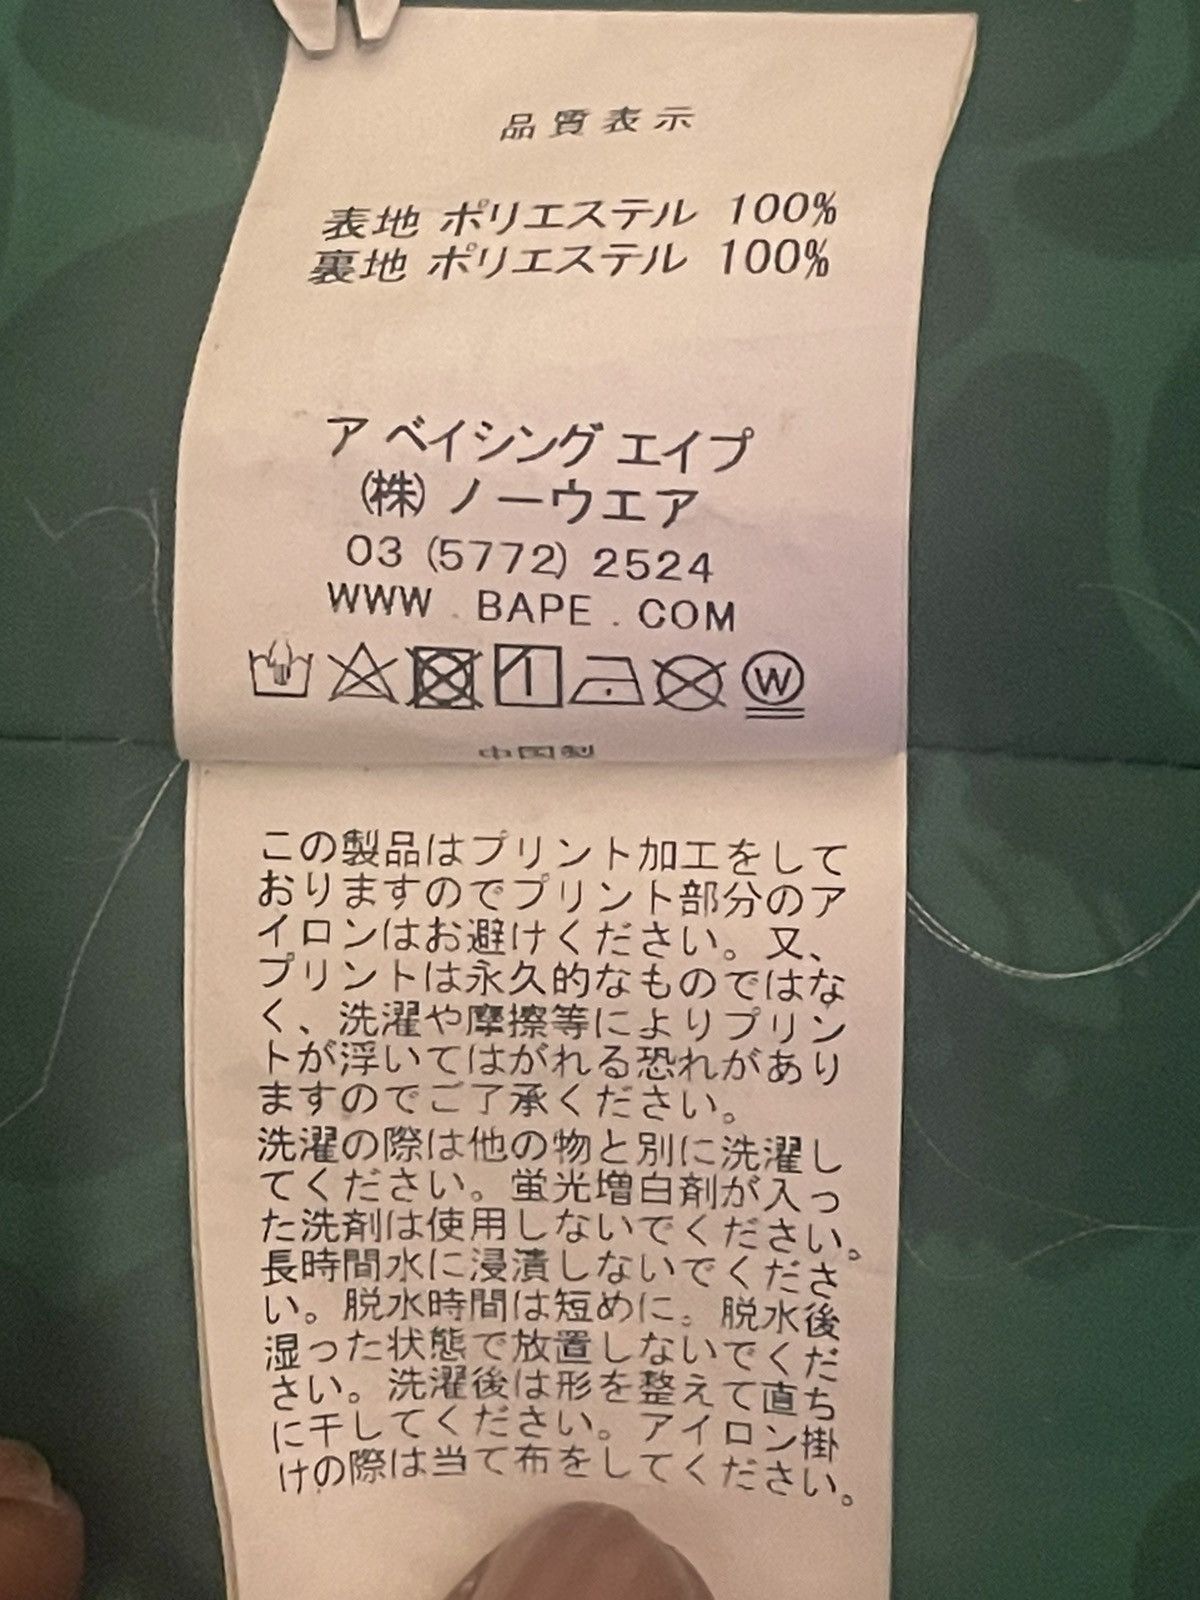 品質表示
表地 ポリエステル 100%
裏地 ポリエステル 100%
ア ベイシング エイプ
(株) ノーウエア
03 (5772) 2524
WWW . BAPE . COM
W
中国製
この製品はプリント加工をして
おりますのでプリント部分のア
イロンはお避けください。又、
プリントは永久的なものではな
く、洗濯や摩擦等によりプリン
トが浮いてはがれる恐れがあり
ますのでご了承ください。
洗濯の際は他の物と別に洗濯し
てください。蛍光増白剤が入っ
た洗剤は使用しないでください。
長時間水に浸漬しないでくださ
い。脱水時間は短めに。脱水後
湿った状態で放置しないでくだ
さい。洗濯後は形を整えて直ち
に干してください。アイロン掛
けの際は当て布をしてください。